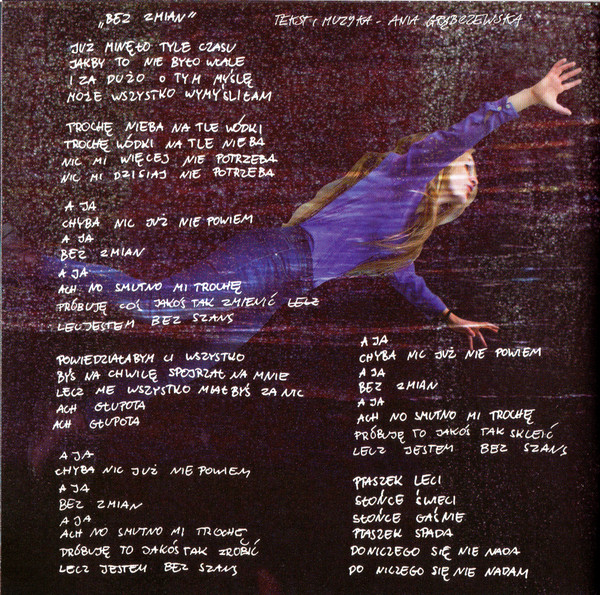 „BEZ ZMIAN"
TEKST i MUZYKA - ANIA GRĄBRZEWSKA
JUŻ MINĘŁO TYLE CZASU
JAKBY TO NIE BYŁO WCALE
I ZA DUŻO O TYM MYŚLĘ
MOŻE WSZYSTKO WYMYŚLIŁAM
TROCHĘ NIEBA NA TLE WÓDKI
TROCHĘ WÓDKI NA TLE NIEBA
NIC MI WIĘCEJ NIE POTRZEBA
NIC MI DZISIAJ NIE POTRZEBA
A JA
CHYBA NIC JUŻ NIE POWIEM
A JA
BEZ ZMIAN
A JA
ACH NO SMUTNO MI TROCHĘ
PRÓBUJĘ COŚ JAKOŚ TAK ZMIENIĆ LECZ
LECZ JESTEM BEZ SZANS
POWIEDZIAŁABYM CI WSZYSTKO
BYŚ NA CHWILĘ SPOJRZAŁ NA MNIE
LECZ ME WSZYSTKO MIAŁBYŚ ZA NIC
ACH GŁUPOTA
ACH GŁUPOTA
A JA
CHYBA NIC JUŻ NIE POWIEM
A JA
BEZ ZMIAN
A JA
ACH NO SMUTNO MI TROCHĘ
PRÓBUJĘ TO JAKOŚ TAK ZROBIĆ
LECZ JESTEM BEZ SZANS
A JA
CHYBA NIC JUŻ NIE POWIEM
A JA
BEZ ZMIAN
A JA
ACH NO SMUTNO MI TROCHĘ
PRÓBUJĘ TO JAKOŚ TAK SKLEIĆ
LECZ JESTEM BEZ SZANS
PTASZEK LECI
SŁOŃCE ŚWIECI
SŁOŃCE GAŚNIE
PTASZEK SPADA
DO NICZEGO SIĘ NIE NADA
DO NICZEGO SIĘ NIE NADAM